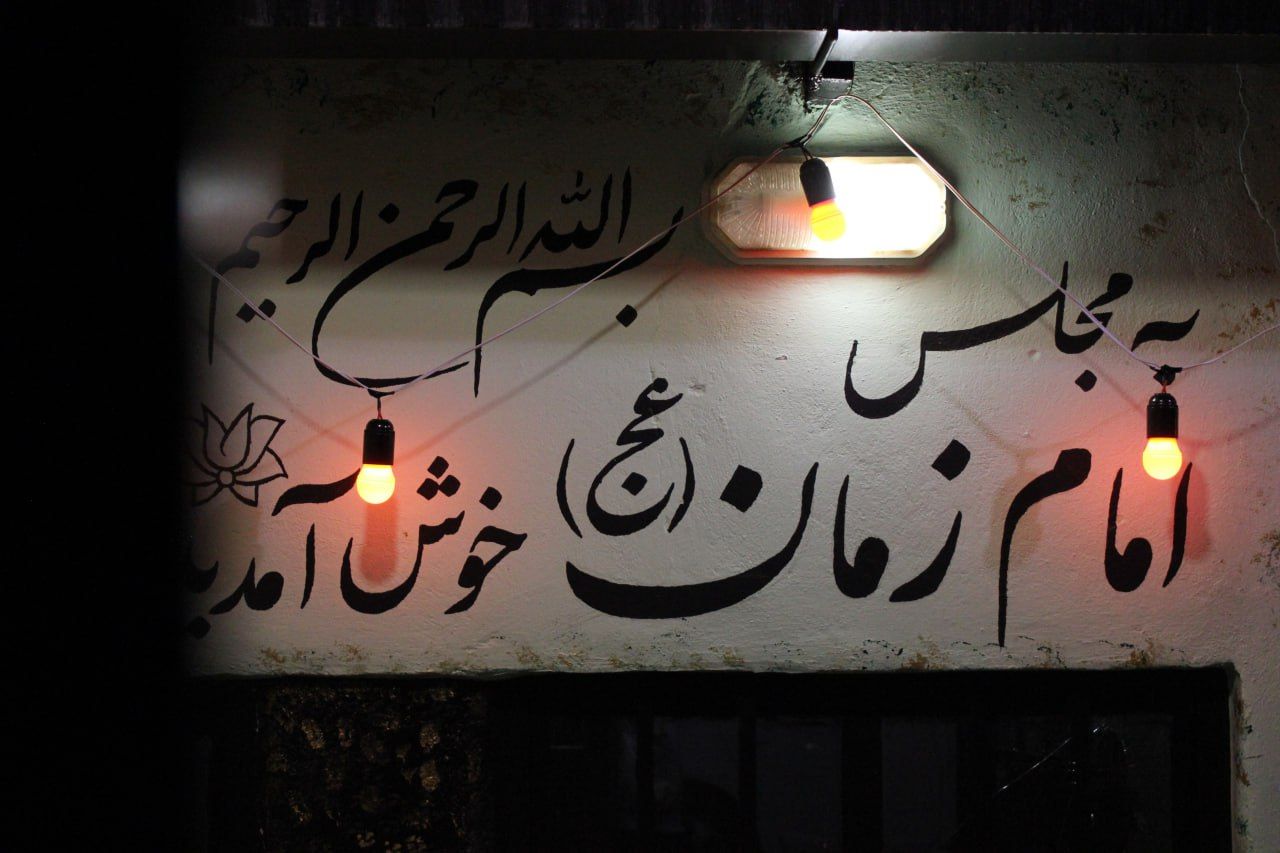 بسم الله الرحمن الرحیم
به مجلس
امام زمان (عج) خوش آمدید